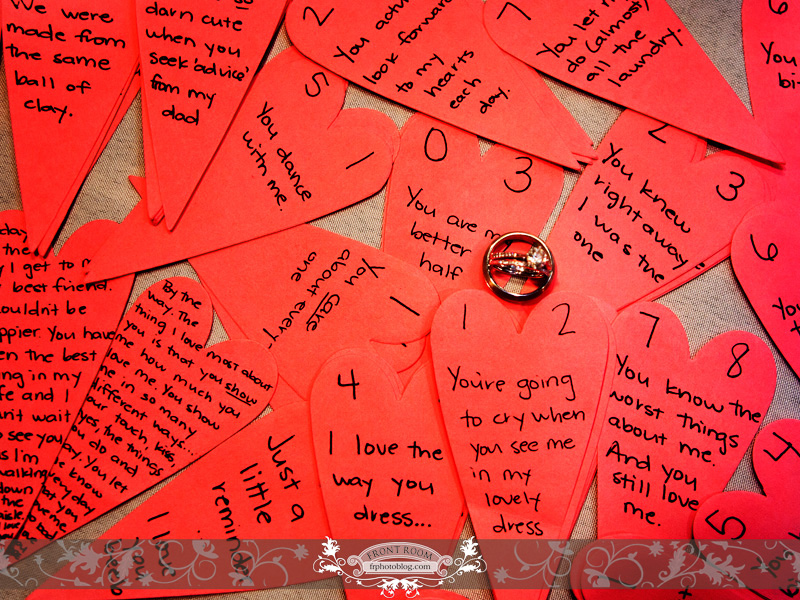 We were
made from
the same
ball of
clay.
darn cute
when you
seek 'advice'
from my
dad
2
look forward
to my
hearts
each
day.
7
You let
do (almost)
all the
laundry.
6
You
5 1
You dance
with me.
0 3
You are
better
half
2 3
You knew
right away
I was the
one
6
1
You care
about every
one
day
I get to
best friend.
you have
the best
in my
life and I
wait
see you
I'm
walking
down
By the
way. The
thing I love most about
you is that you show
me how much you
love me. You show
me in so many
different ways...
your touch, kiss,
eyes, the things
you do and
say. You let
me know
everyday
Just a
little
I love
you
4
I love the
way you
dress...
1 2
You're going
to cry when
you see me
in my
lovely
dress
7 8
You know the
worst things
about me.
And you
still love
me.
5
FRONT ROOM
frphotoblog.com